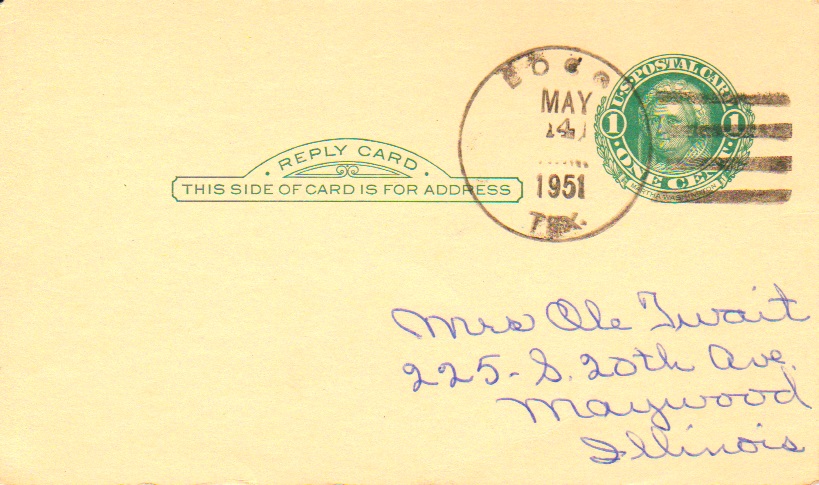 U.S. POSTAL CARD
1 1
ONE CENT
MARTHA WASHINGTON
MAY
1951
TEX.
REPLY CARD
THIS SIDE OF CARD IS FOR ADDRESS
Mrs Ole Twait
225 - S. 20th Ave.
Maywood
Illinois